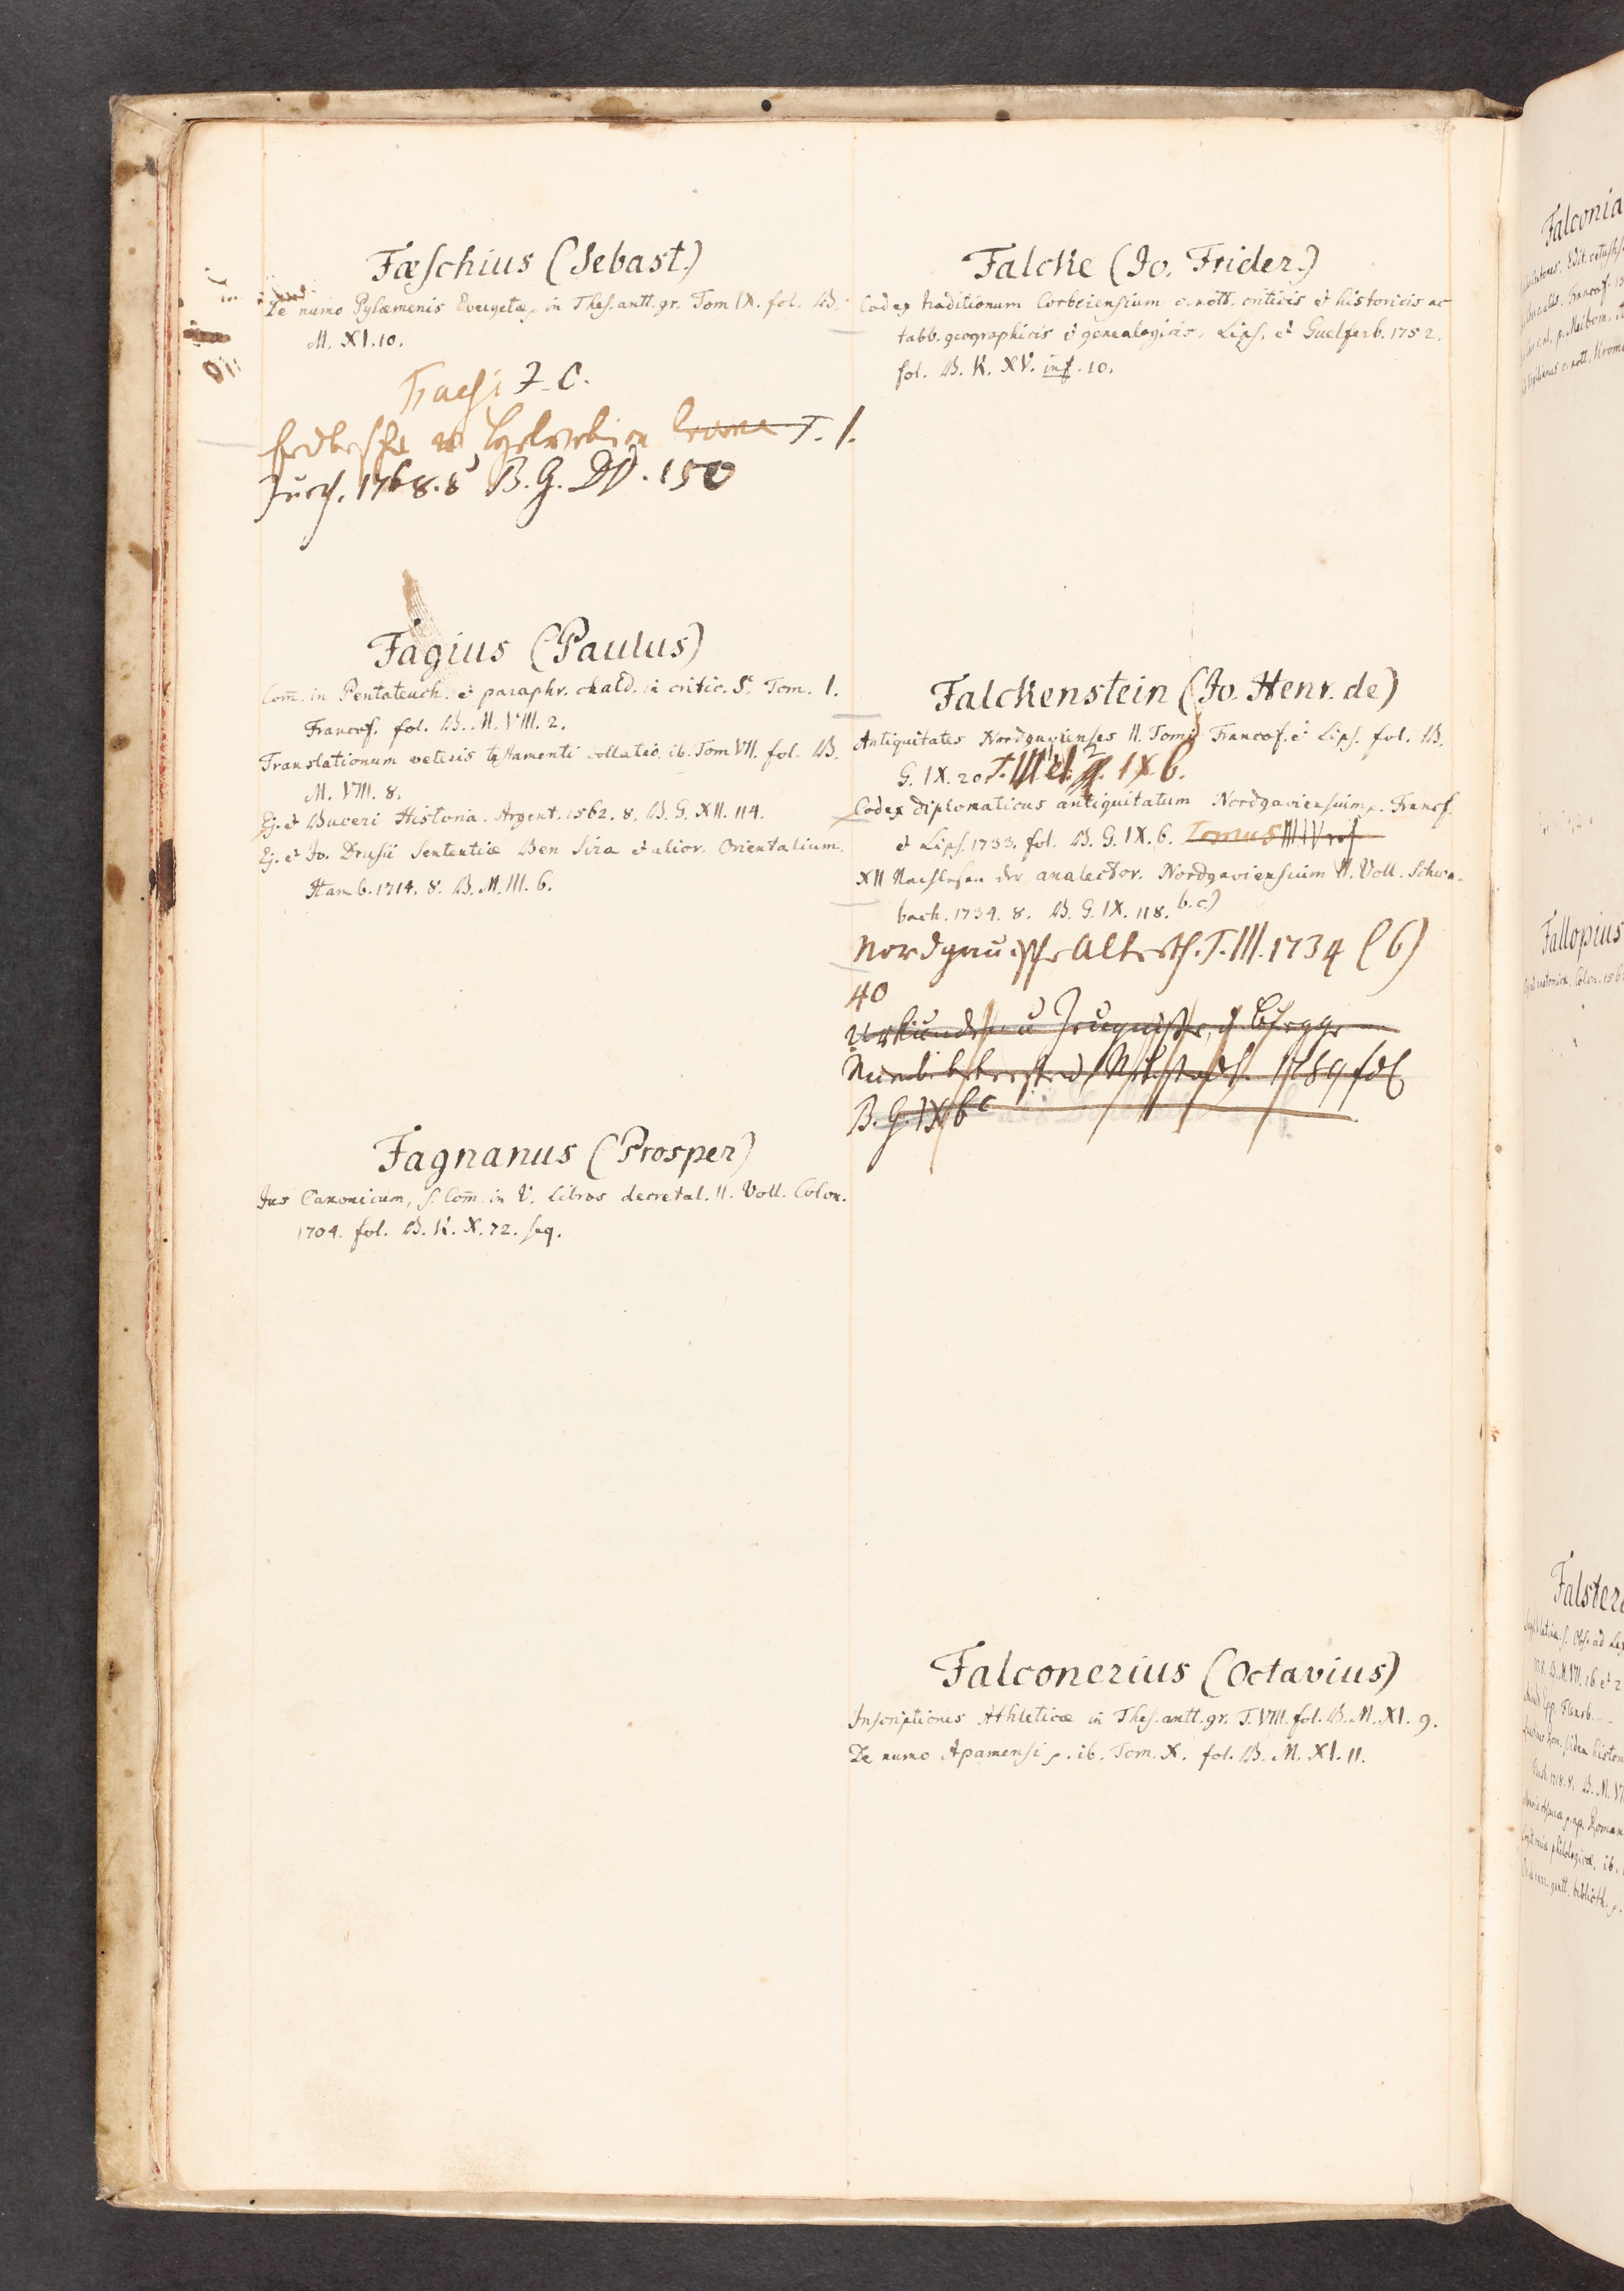 Fæschius (Sebast.)
De numo Pylæmenis Evergetæ, in Thes. antt. gr. Tom IX. fol. B.
M. XI. 10.
Faesi J. C.
T. 1.
Zürch. 1768. 8 B. G. 150
Fagius (Paulus)
Com̄. in Pentateuch. et paraphr. chald. in critic. S. Tom. I.
Francof. fol. B. M. VIII. 2.
Translationum veteris testamenti collatio. ib. Tom VII. fol. B.
M. VIII. 8.
Ej. et Buceri Historia. Argent. 1562. 8. B. G. XII. 114.
Ej. et Jo. Drusii Sententiæ Ben Sira et alior. Orientalium.
Hamb. 1714. 8. B. M. III. 6.
Fagnanus (Prosper)
Jus Canonicum, s. Com̄. in V. Libros decretal. II. Voll. Colon.
1704. fol. B. K. X. 72. seq.
Falcke (Jo. Frider.)
Codex traditionum Corbeiensium c. nott. criticis et historicis ac
tabb. geographicis et genealogicis. Lips. et Guelferb. 1752.
fol. B. K. XV. inf. 10.
Falckenstein (Jo. Henr. de)
Antiquitates Nordgavienses II. Tomi Francof. et Lips. fol. B.
G. IX. 20. IX 6.
Codex diplomaticus antiquitatum Nordgaviensium. Francf.
et Lips. 1733. fol. B. G. IX. 6. Tomus
XII Nachlesen der analector. Nordgaviensium II. Voll. Schwa-
bach. 1734. 8. B. G. IX. 118. b. c)
Nordgauische Alterth. T. III. 1734 (6)
40
Urkunden u Zeugnisse
Neustadt 1789 fol
B. G. IX 6 c
Falconerius (Octavius)
Inscriptiones Athleticæ in Thes. antt. gr. T. VIII. fol. B. M. XI. 9.
De numo Apamensi ib. Tom. X. fol. B. M. XI. 11.
Falconia
Fallopius
Falster